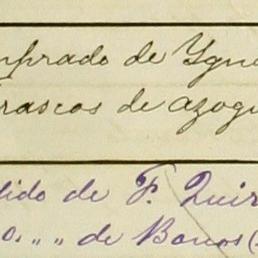 mprado de Ygn
rascos de azog
dido de F. Quir
o. „ „ de Bancos (